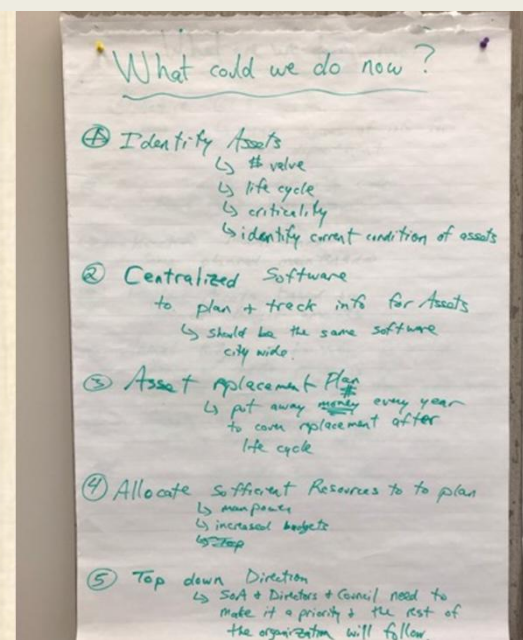 What could we do now?
① Identify Assets
↳ $ value
↳ life cycle
↳ criticality
↳ identify current condition of assets
② Centralized Software
to plan + track info for Assets
↳ should be the same software
city wide.
③ Asset replacement Plan
↳ put away money every year
to cover replacement after
life cycle
④ Allocate Sufficient Resources to to plan
↳ man power
↳ increased budgets
↳ Top
⑤ Top down Direction
↳ SOA + Directors + Council need to
make it a priority + the rest of
the organization will follow